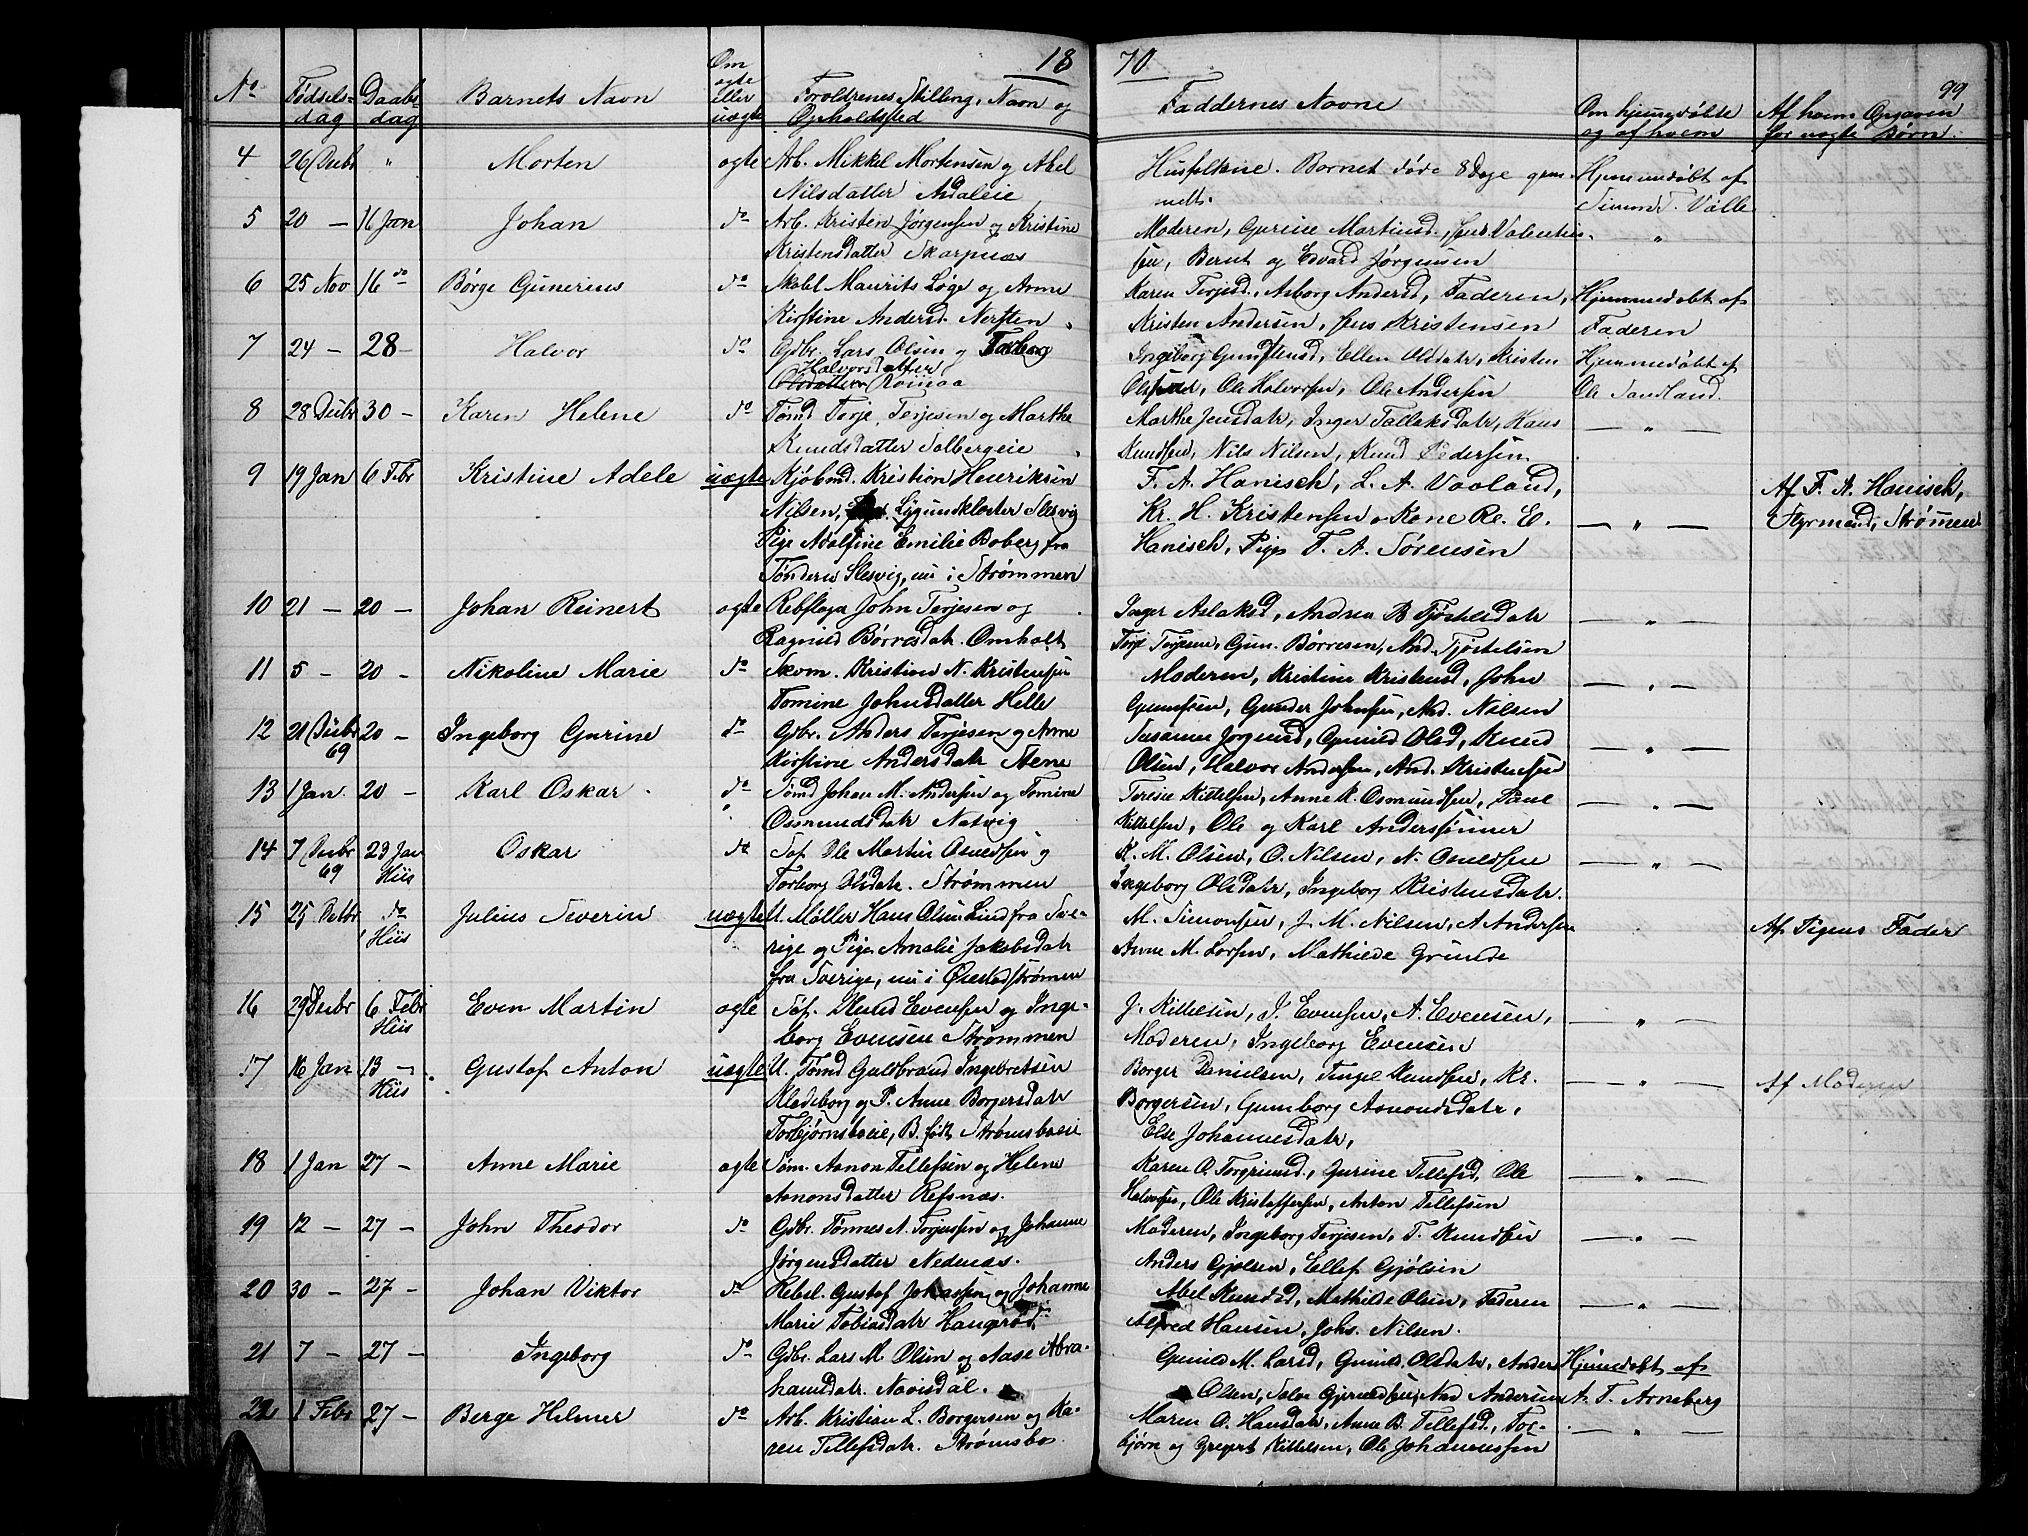 18 70
99
No Fødsels- Daabs- Barnets Navn Om Forældrenes Stilling, Navn og Faddernes Navne Om hjemmedøbte Af hvem Opgaven
dag dag ægte eller uægte Opholdsted og af hvem for uægte Børn.
4 26 Decbr " Morten ægte Arb. Mikkel Mortensen og Abel Husfolkene. Barnet døde 8 Dage gam- Hjemmedøbt af
Nilsdatter Asdaleie melt. Valle
5 20 — 16 Jan Johan do Arb. Kristen Jørgensen og Kristine Moderen, Gurine Martinsd., Jens Valentin- "
Kristensdatter Skarpnæs sen, Bernt og Edvard Jørgensen
6 25 Nov 16 do Børge Gunerius do Skol. Maurits Løge og Anne Karen Terjesd., Asborg Andersd, Faderen, Hjemmedøbt af
Kirstine Andersd. Nersten Kristen Andersen, Jens Kristensen Faderen
7 24 — 28 — Halvor do Gdbr. Lars Olsen og Torborg Ingeborg Ellen Olsdatr, Kristen Hjemmedøbt af
Halvorsdatter
Olsdatter Ole Halvorsen, Ole Andersen Ole Sandland.
8 28 Decbr 30 — Karen Helene do Tømd Terje Terjesen og Marthe Marthe Jensdatr, Inger Tallaksdatr, Hans — " —
Knudsdatter Solbergeie Knudsen, Nils Nilsen, Knud Pedersen
9 19 Jan 6 Febr Kristine Adele uægte Kjøbmd. Kristian Henriksen F. A. Hanisch, L. A. Vaaland, Af F. A. Hanisch,
Nilsen, Lygumkloster Slesvig Kr. H. Kristensen, Kone Re. E. — " — Styrmand, Strømmen
Pige Adolfine Emilie Boberg fra Hanisch, Pige T. A. Sørensen
Tønderu Slesvig, nu i Strømmen
10 21 — 20 — Johan Reinert ægte Rebslager John Terjesen og Inger Aslaksd, Andrea B Tjøstelsdatr — " —
Ragnild Børresdatr. Omholt Terje Terjesen, Gun. Børresen, And. Tjøstelsen
11 5 — 20 — Nikoline Marie do Skom. Kristian N. Kristensen Moderen, Kristine Kristensd, John — " —
Tomine Johnsdatter Helle Gunnsen, Gunder Johnsen, And. Nilsen
12 21 Decbr 20 — Ingeborg Gurine do Gdbr. Anders Terjesen og Anne Susanne Jørgensd, Gunild Olsd, Knud — " —
69 Kirstine Andersdatr Stene Olsen, Halvor Andersen, And. Kristensen
13 1 Jan 20 — Karl Oskar do Tømd Johan M. Andersen og Tomine Terese Kittelsen, Anne K. Osmundsen, Paul — " —
Osmundsdatr Natvig Kittelsen, Ole og Karl Anderssønner
14 7 Decbr 23 Jan Oskar do Søf. Ole Martin Osuldsen og K. M. Olsen, O. Nilsen, N. Osuldsen — " —
69 Hiis Torborg Olsdatr. Strømmen Ingeborg Olsdatr, Ingeborg Kristensdatr.
15 25 Octbr do Julius Severin uægte U. Møller Hans Olsen Lind fra Sve- M. Simonsen, J. M. Nilsen, A Andersen Af Pigens Fader
Hiis rige og Pige Amalie Jakobsdatr Anne M. Larsen, Mathilde Grunde
fra Sverige, nu i Øiestadstrømmen
16 29 Decbr 6 Febr Even Martin ægte Søf. Knud Evensen og Inge- J. Kittelsen, J. Evensen, A. Evensen, — " —
Hiis borg Evensen Strømmen Moderen, Ingeborg Evensen
17 16 Jan 13 — Gustaf Anton uægte U. Tømd Guldbrand Ingebretsen Børger Danielsen, Tengel Knudsen, Kr. — " — Af Moderen
Hiis Kladeborg og P. Anne Borgersdatr Borgersen, Gunnborg Asmondsdatr,
Torbjørnsboeie, B. født Strømsboeie Else Johannesdatr,
18 1 Jan 27 — Anne Marie ægte Søm. Aanon Tellefsen og Helene Karen O. Torgrimsd., Gurine Tellefsd, Ole — " —
Aanonsdatter Refsnæs. Halvorsen, Ole Kristoffersen, Anton Tellefsen
19 12 — 27 — John Theodor do Gdbr. Tønnes N. Terjesen og Johanne Moderen, Ingeborg Terjesen, T. Knudsen — " —
Jørgensdatter Nedenæs. Anders Gjølsen, Ellef Gjølsen
20 30 — 27 — Johan Viktor do Rebsl. Gustaf Johansen og Johanne Abel Knudsd, Mathilde Olsen, Faderen — " —
Marie Tobiasdatr Haugerød. Alfred Hansen, Johs. Nilsen.
21 7 — 27 — Ingeborg do Gdbr. Lars M. Olsen og Aase Abra- Gunild M. Larsd, Gunild Olsdatr, Anders Hjemdøbt af
hamsdatr. Navisdal. Olsen, Salve Gjermundsen, And Andersen A. T. Arneberg
22 1 Febr 27 — Berge Helmer do Arb. Kristian L. Borgersen og Ka- Maren O. Hansdatr, Anne B. Tellefsd, Tor- — " —
ren Tellefsdatr. Strømsbo bjørn og Gregert Kittelsen, Ole Johannessen